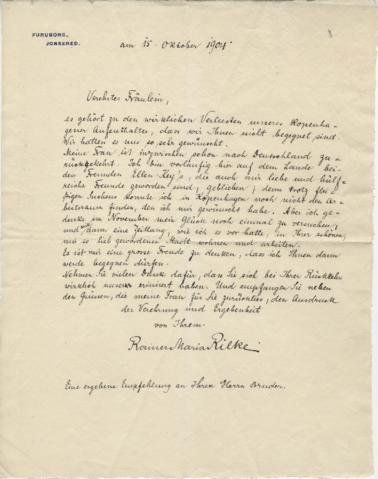 FURUBORG,
JONSERED.
am 15. Oktober 1904.
Verehrtes Fräulein,
es gehört zu den wirklichen Verlusten unseres Kopenha-
gener Aufenthaltes, dass wir Ihnen nicht begegnet sind.
Wir hatten es uns so sehr gewünscht.
Meine Frau ist inzwischen schon nach Deutschland zu-
rückgekehrt. Ich bin vorläufig hier auf dem Lande bei
den Freunden Ellen Key's, die auch mir liebe und hülf-
reiche Freunde geworden sind, geblieben; denn trotz flei-
zigen Suchens konnte ich in Kopenhagen noch nicht den Ar-
beitsraum finden, den ich mir gewünscht habe. Aber ich ge-
denke im November mein Glück noch einmal zu versuchen,
und dann eine Zeitlang, wie ich es vor hatte, in Ihrer schönen,
mir so lieb gewordenen Stadt wohnen und arbeiten.
Es ist mir eine grosse Freude zu denken, dass ich Ihnen dann
werde begegnen dürfen.
Nehmen Sie vielen Dank dafür, dass Sie sich bei Ihrer Rückkehr
wirklich unserer erinnert haben. Und empfangen Sie neben
den Grüssen, die meine Frau für Sie zurückliess, den Ausdruck
der Verehrung und Ergebenheit
von Ihrem
Rainer Maria Rilke.
Eine ergebene Empfehlung an Ihren Herrn Bruder.